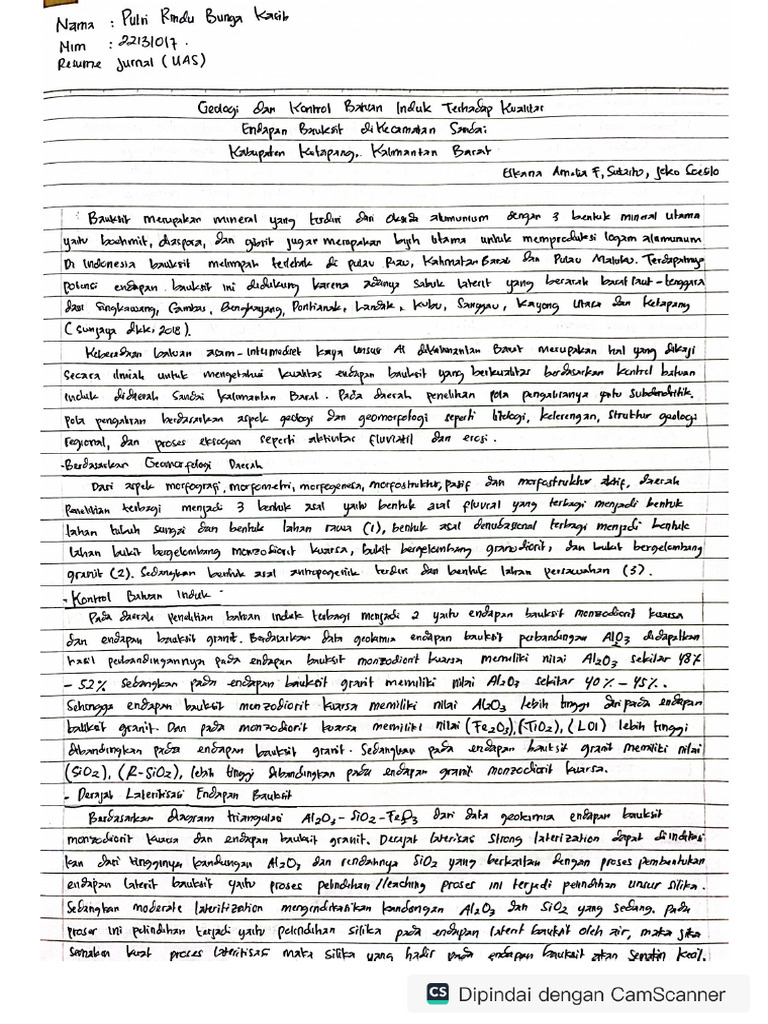 Nama : Putri Rindu Bunga Kasih
Nim : 22131017.
Resume Jurnal (UAS)
Geologi dan Kontrol Batuan Induk Terhadap Kualitas
Endapan Bauksit di Kecamatan Sandai
Kabupaten Ketapang, Kalimantan Barat
Elkana Amalia F, Sutarto, Joko Soesilo
Bauksit merupakan mineral yang terdiri dari oksida alumunium dengan 3 bentuk mineral utama
yaitu boehmit, diaspora, dan gibsit jugar merupakan bijih utama untuk memproduksi logam alumunum
Di Indonesia bauksit melimpah terletak di pulau Riau, Kalimatan Barat dan Pulau Maluku. Terdapatnya
potensi endapan bauksit ini didukung karena adanya sabuk laterit yang berarah barat laut - tenggara
dari Singkawang, Sambas, Bengkayang, Pontianak, Landak, Kubu, Sanggau, Kayong Utara dan Ketapang
(Sunjaya dkk; 2018).
Keberadaan batuan asam-intermediet kaya unsur Al dikalimantan Barat merupakan hal yang dikaji
Secara ilmiah untuk mengetahui kualitas endapan bauksit yang berkualitas berdasarkan kontrol batuan
Induk didaerah Sandai Kalimantan Barat. Pada daerah penelitian pola pengalirannya yaitu Subdendritik.
pola pengaliran berdasarkan aspek geologi dan geomorfologi seperti litologi, kelerengan, struktur geologi
regional, dan proses eksogen seperti aktivitas fluviatil dan erosi.
- Berdasarkan Geomorfologi Daerah
Dari aspek morfografi, morfometri, morfogenesa, morfostruktur, pasif dan morfostruktur aktif, daerah
Penelitian terbagi menjadi 3 bentuk asal yaitu bentuk asal fluvial yang terbagi menjadi bentuk
lahan tubuh sungai dan bentuk lahan rawa (1), bentuk asal denudasional terbagi menjadi bentuk
lahan bukit bergelombang monzodiorit kuarsa, bukit bergelombang granodiorit, dan bukit bergelombang
granit (2). Sedangkan bentuk asal antropogenik terdiri dari bentuk lahan persawahan (3).
- Kontrol Batuan Induk -
Pada daerah penelitian batuan induk terbagi menjadi 2 yaitu endapan bauksit monzodiorit kuarsa
dan endapan bauksit granit. Berdasarkan data geokimia endapan bauksit perbandingan Al2O3 didapatkan
hasil perbandingannya pada endapan bauksit monzodiorit kuarsa memiliki nilai Al2O3 sekitar 48%
- 52% Sedangkan pada endapan bauksit granit memiliki nilai Al2O3 sekitar 40% - 45%.
Sehingga endapan bauksit monzodiorit kuarsa memiliki nilai Al2O3 lebih tinggi daripada endapan
bauksit granit. Dan pada monzodiorit kuarsa memiliki nilai (Fe2O3), (TiO2), (LOI) lebih tinggi
dibandingkan pada endapan bauksit granit. Sedangkan pada endapan bauksit granit memiliki nilai
(SiO2), (R-SiO2), lebih tinggi dibandingkan pada endapan granit monzodiorit kuarsa.
- Derajat Lateritisasi Endapan Bauksit
Berdasarkan diagram triangulasi Al2O3-SiO2-Fe2O3 dari data geokimia endapan bauksit
monzodiorit kuarsa dan endapan bauksit granit. Derajat laterisasi strong laterization dapat diindikasi
kan dari tingginya kandungan Al2O3 dan rendahnya SiO2 yang berkaitan dengan proses pembentukan
endapan laterit bauksit yaitu proses pelindihan /leaching proses ini terjadi pelindihan unsur silika.
Sedangkan moderate lateritization mengindikasikan kandungan Al2O3 dan SiO2 yang sedang. pada
proses ini pelindihan terjadi yaitu pelindihan silika pada endapan laterit bauksit oleh air, maka jika
semakin kuat proses lateritisasi maka silika yang hadir pada endapan bauksit akan semakin kecil.
CS Dipindai dengan CamScanner